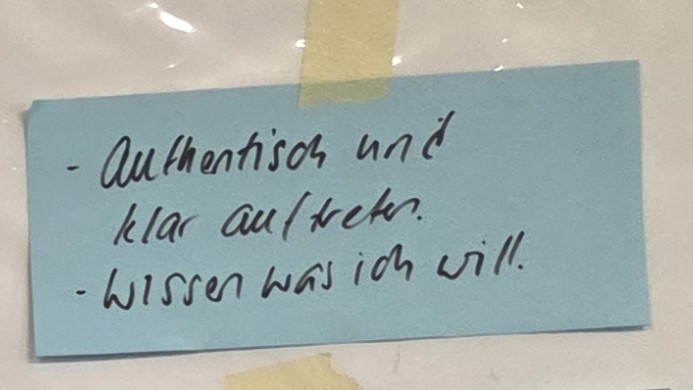 - Authentisch und
klar auftreten.
- Wissen was ich will.